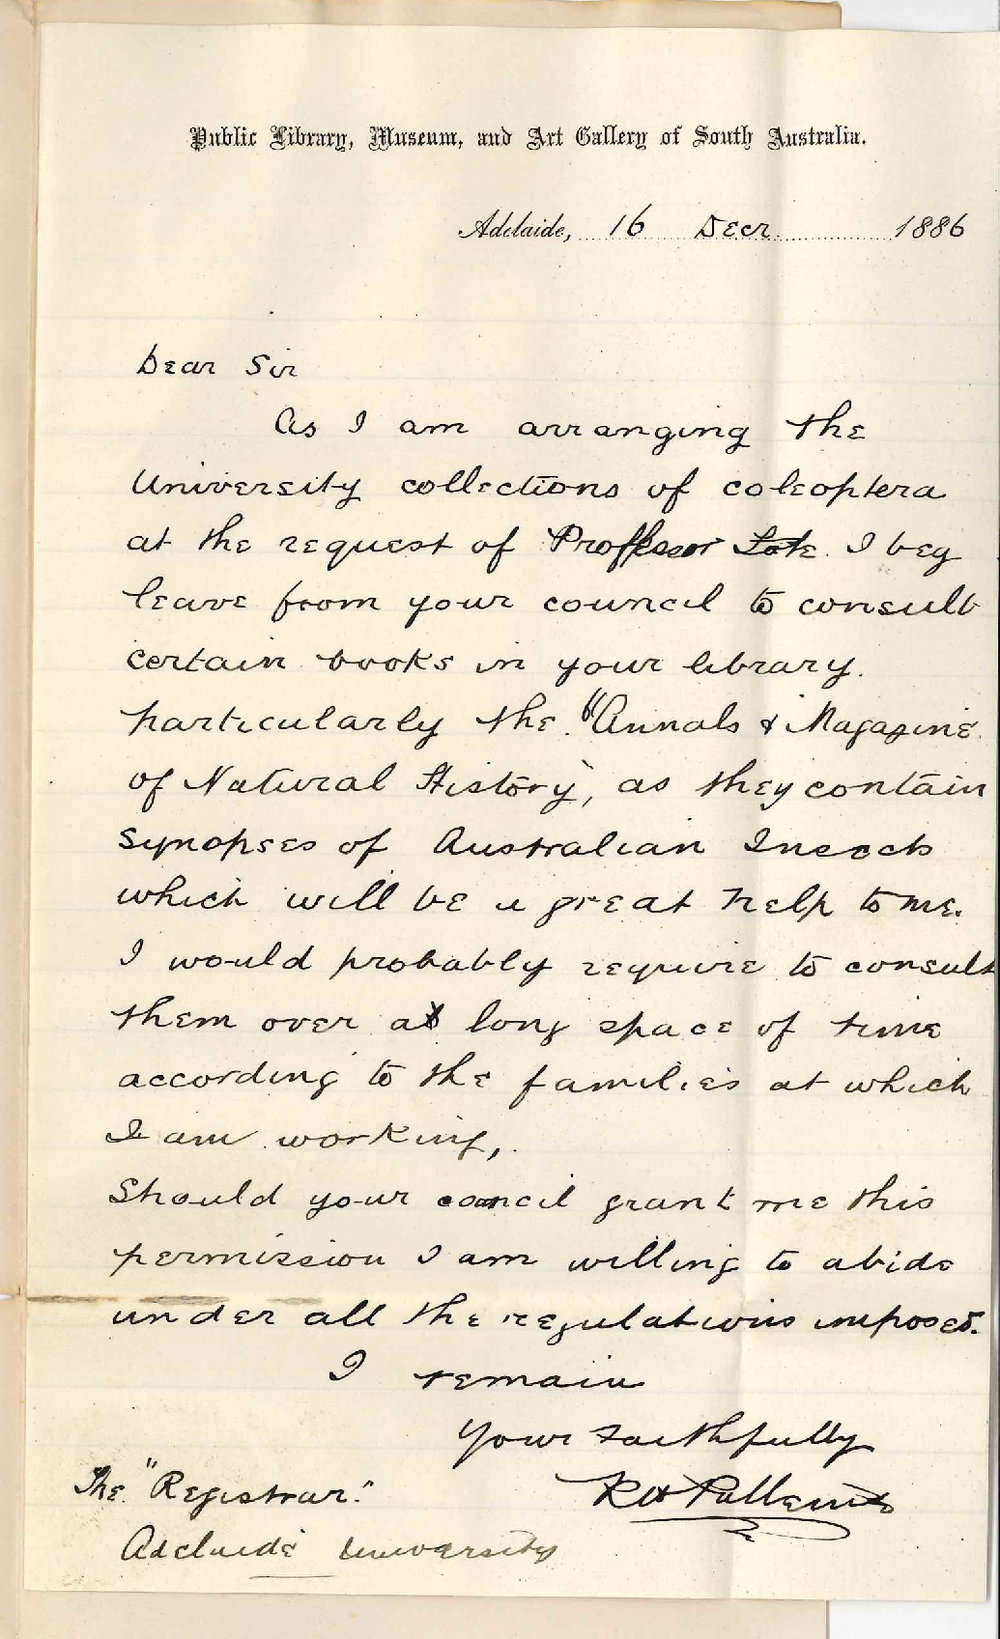 Public Library, Museum, and Art Gallery of South Australia.
Adelaide, 16 Decr 1886
Dear Sir
As I am arranging the
University collections of coleoptera
at the request of Professor Tate I beg
leave from your council to consult
certain books in your library.
particularly the "Annals & Magazine
of Natural History", as they contain
synopses of Australian Insects
which will be a great help to me.
I would probably require to consult
them over a long space of time
according to the families at which
I am working,
Should your council grant me this
permission I am willing to abide
under all the regulations imposed.
I remain
Your faithfully
The "Registrar."
Adelaide University